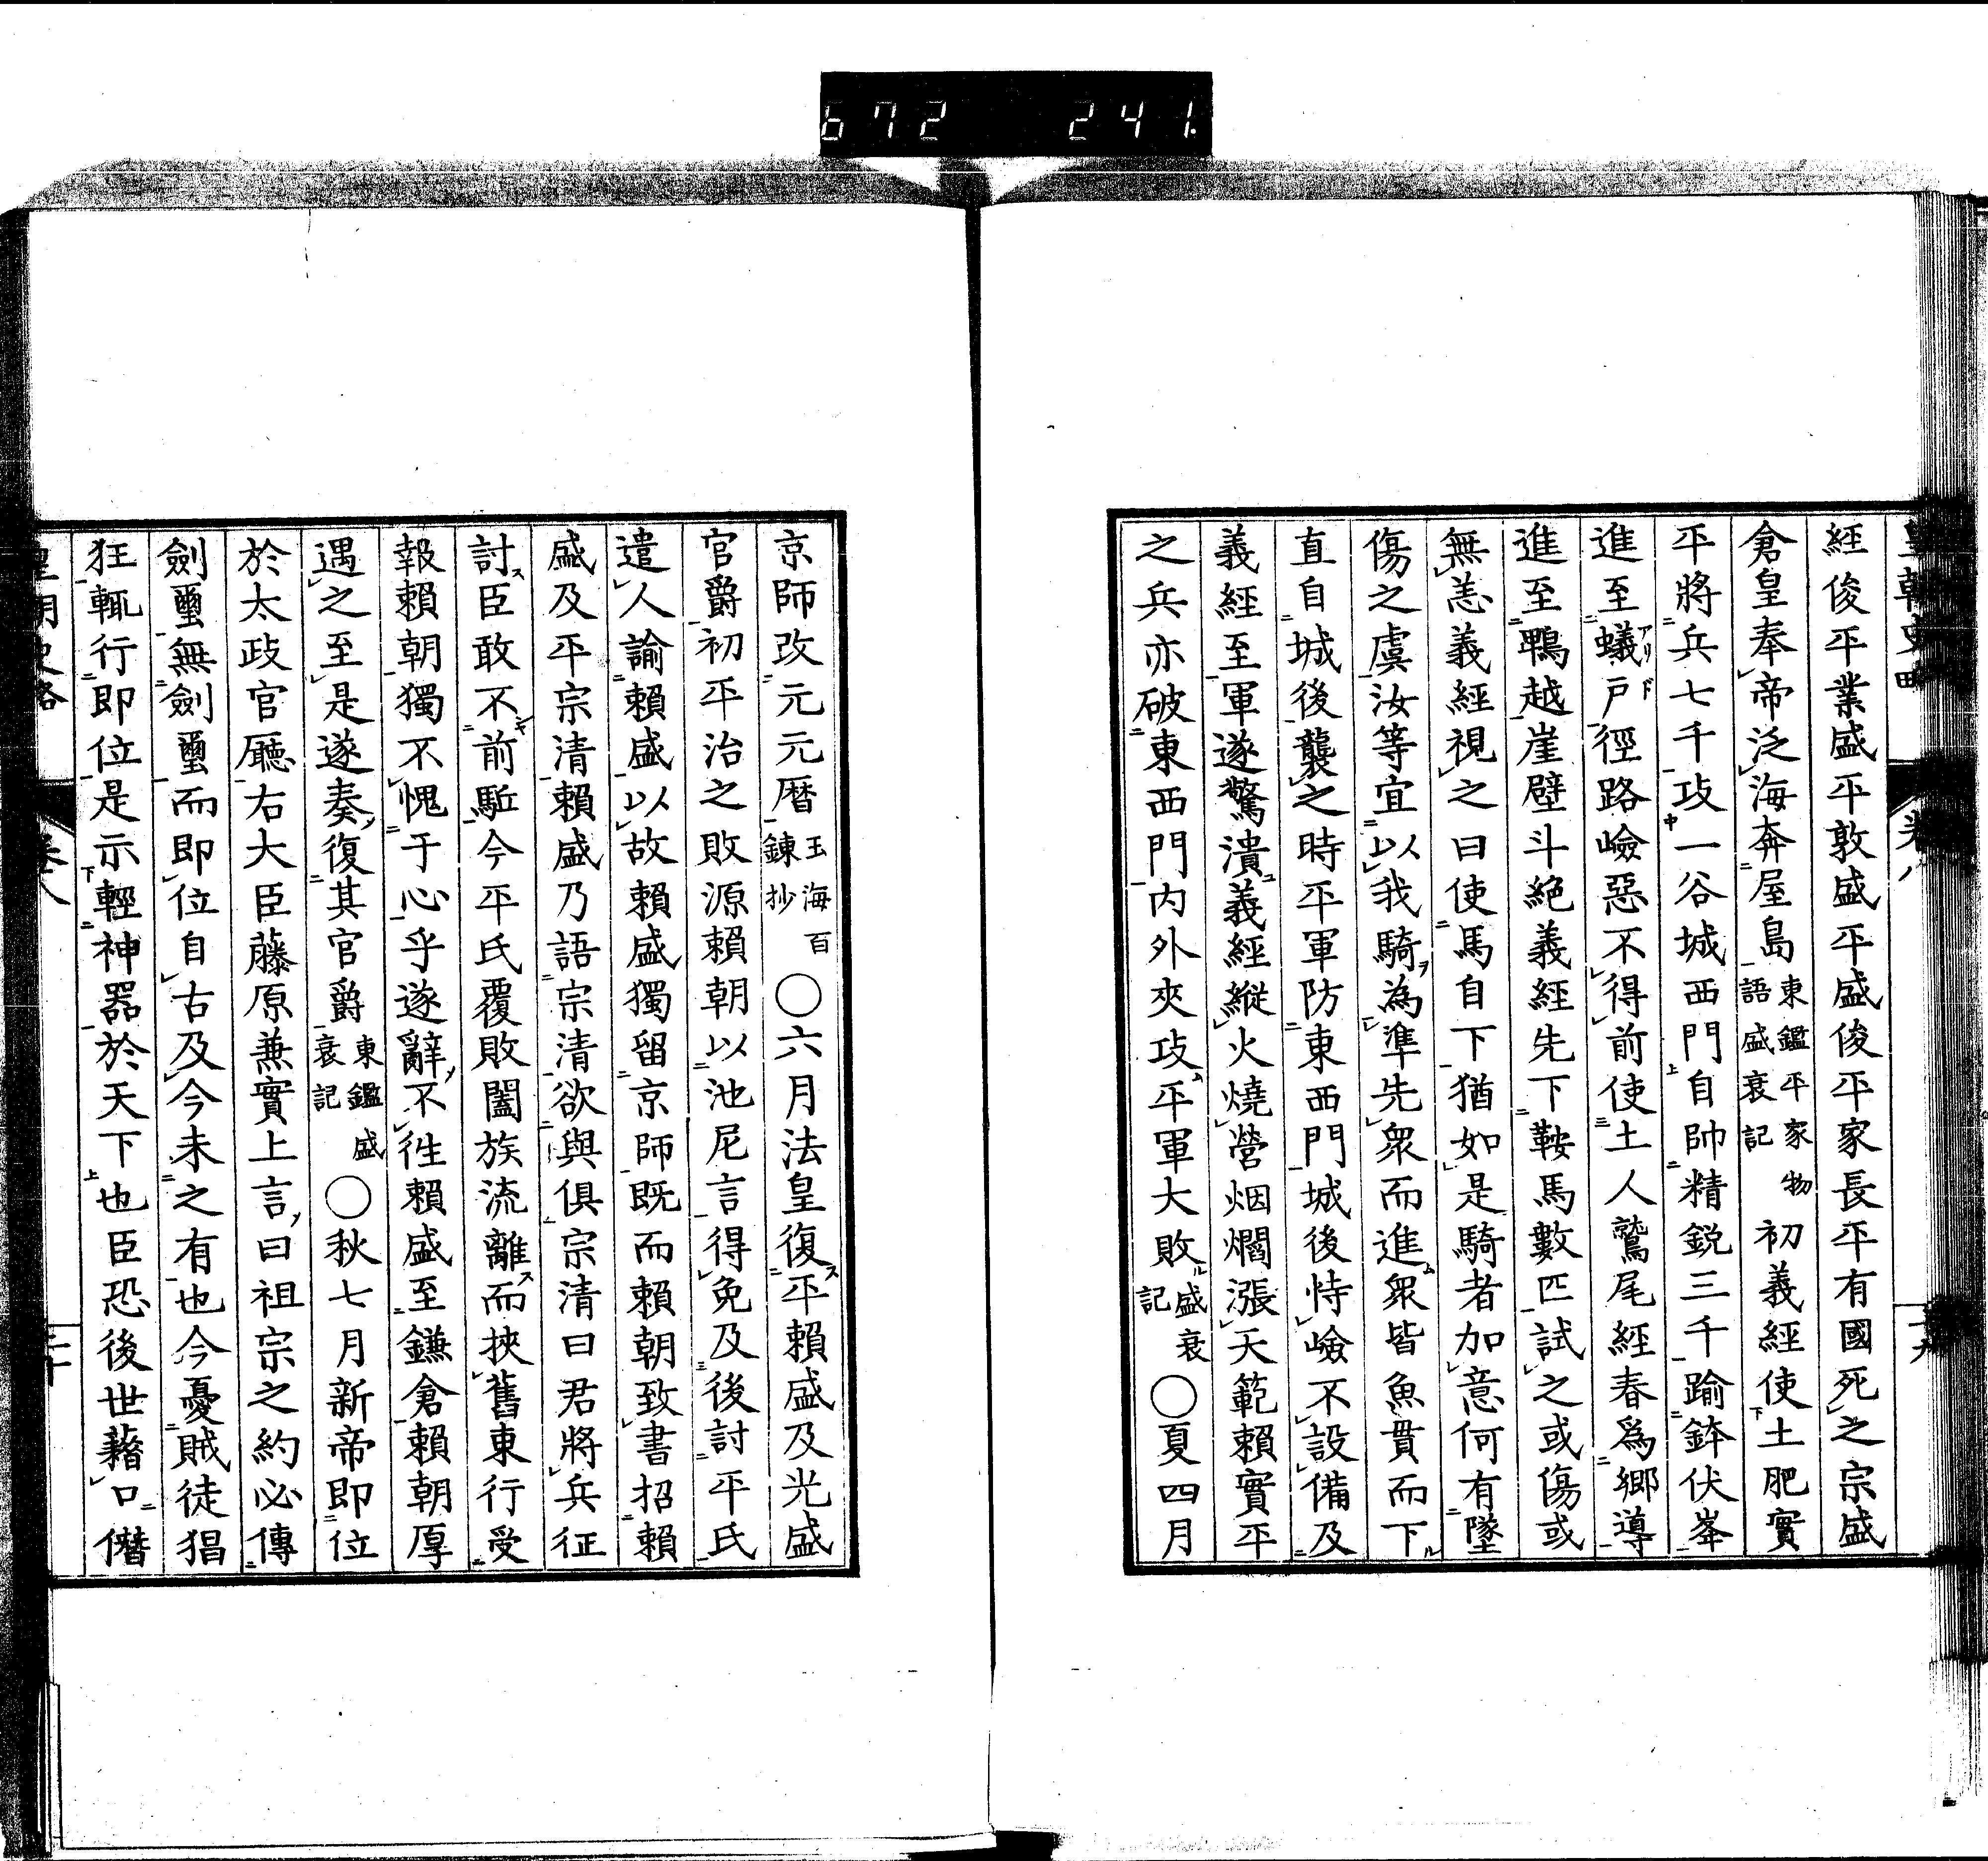 672 241.
皇朝史略 卷八 十九
經俊平業盛平敦盛平盛俊平家長平有國死之宗盛
倉皇奉帝泛海奔屋島東鑑平家物語盛衰記初義經使土肥實
平將兵七千攻一谷城西門自帥精鋭三千踰鉢伏峯
進至蟻戸徑路嶮惡不得前使土人鷲尾經春爲郷導
進至鵯越崖壁斗絶義經先下鞍馬數匹試之或傷或
無恙義經視之曰使馬自下猶如是騎者加意何有墜
傷之虞汝等宜以我騎為準先衆而進衆皆魚貫而下
直自城後襲之時平軍防東西門城後恃嶮不設備及
義經至軍遂驚潰義經縱火燒營烟爓漲天範賴實平
之兵亦破東西門内外夾攻平軍大敗盛衰記○夏四月
京師改元元暦玉海百錬抄○六月法皇復平賴盛及光盛
官爵初平治之敗源賴朝以池尼言得免及後討平氏
遣人諭賴盛以故賴盛獨留京師既而賴朝致書招賴
盛及平宗清賴盛乃語宗清欲與俱宗清曰君將兵征
討臣敢不前駈今平氏覆敗闔族流離而挾舊東行受
報賴朝獨不愧于心乎遂辭不徃賴盛至鎌倉賴朝厚
遇之至是遂奏復其官爵東鑑盛衰記○秋七月新帝即位
於太政官廳右大臣藤原兼實上言曰祖宗之約必傳
劍璽無劍璽而即位自古及今未之有也今憂賊徒猖
狂輒行即位是示輕神器於天下也臣恐後世藉口僭
皇朝史略 卷八 二十